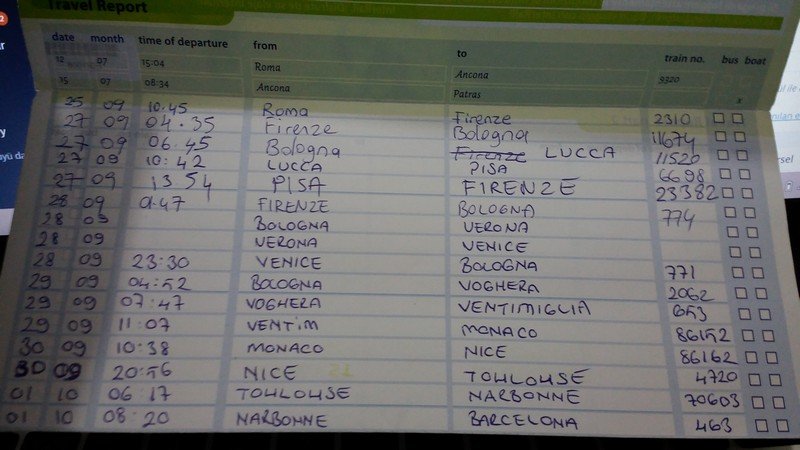 Travel Report
date month time of departure from to train no. bus boat
12 07 15:04 Roma Ancona 9320
15 07 08:34 Ancona Patras x
25 09 10:45 Roma Firenze 2310
27 09 04.35 Firenze Bologna 11674
27 09 06.45 Bologna Firenze LUCCA 11520
27 09 10:42 LUCCA PISA 6698
27 09 13.54 PISA FIRENZE 23382
28 09 01.47 FIRENZE BOLOGNA 774
28 09 BOLOGNA VERONA
28 09 VERONA VENICE
28 09 23:30 VENICE BOLOGNA 771
29 09 04:52 BOLOGNA VOGHERA 2062
29 09 07:47 VOGHERA VENTIMIGLIA 653
29 09 11:07 VENTIM MONACO 86152
30 09 10:38 MONACO NICE 86162
30 09 20:56 NICE TOULOUSE 4720
01 10 06:17 TOULOUSE NARBONNE 70603
01 10 08:20 NARBONNE BARCELONA 463